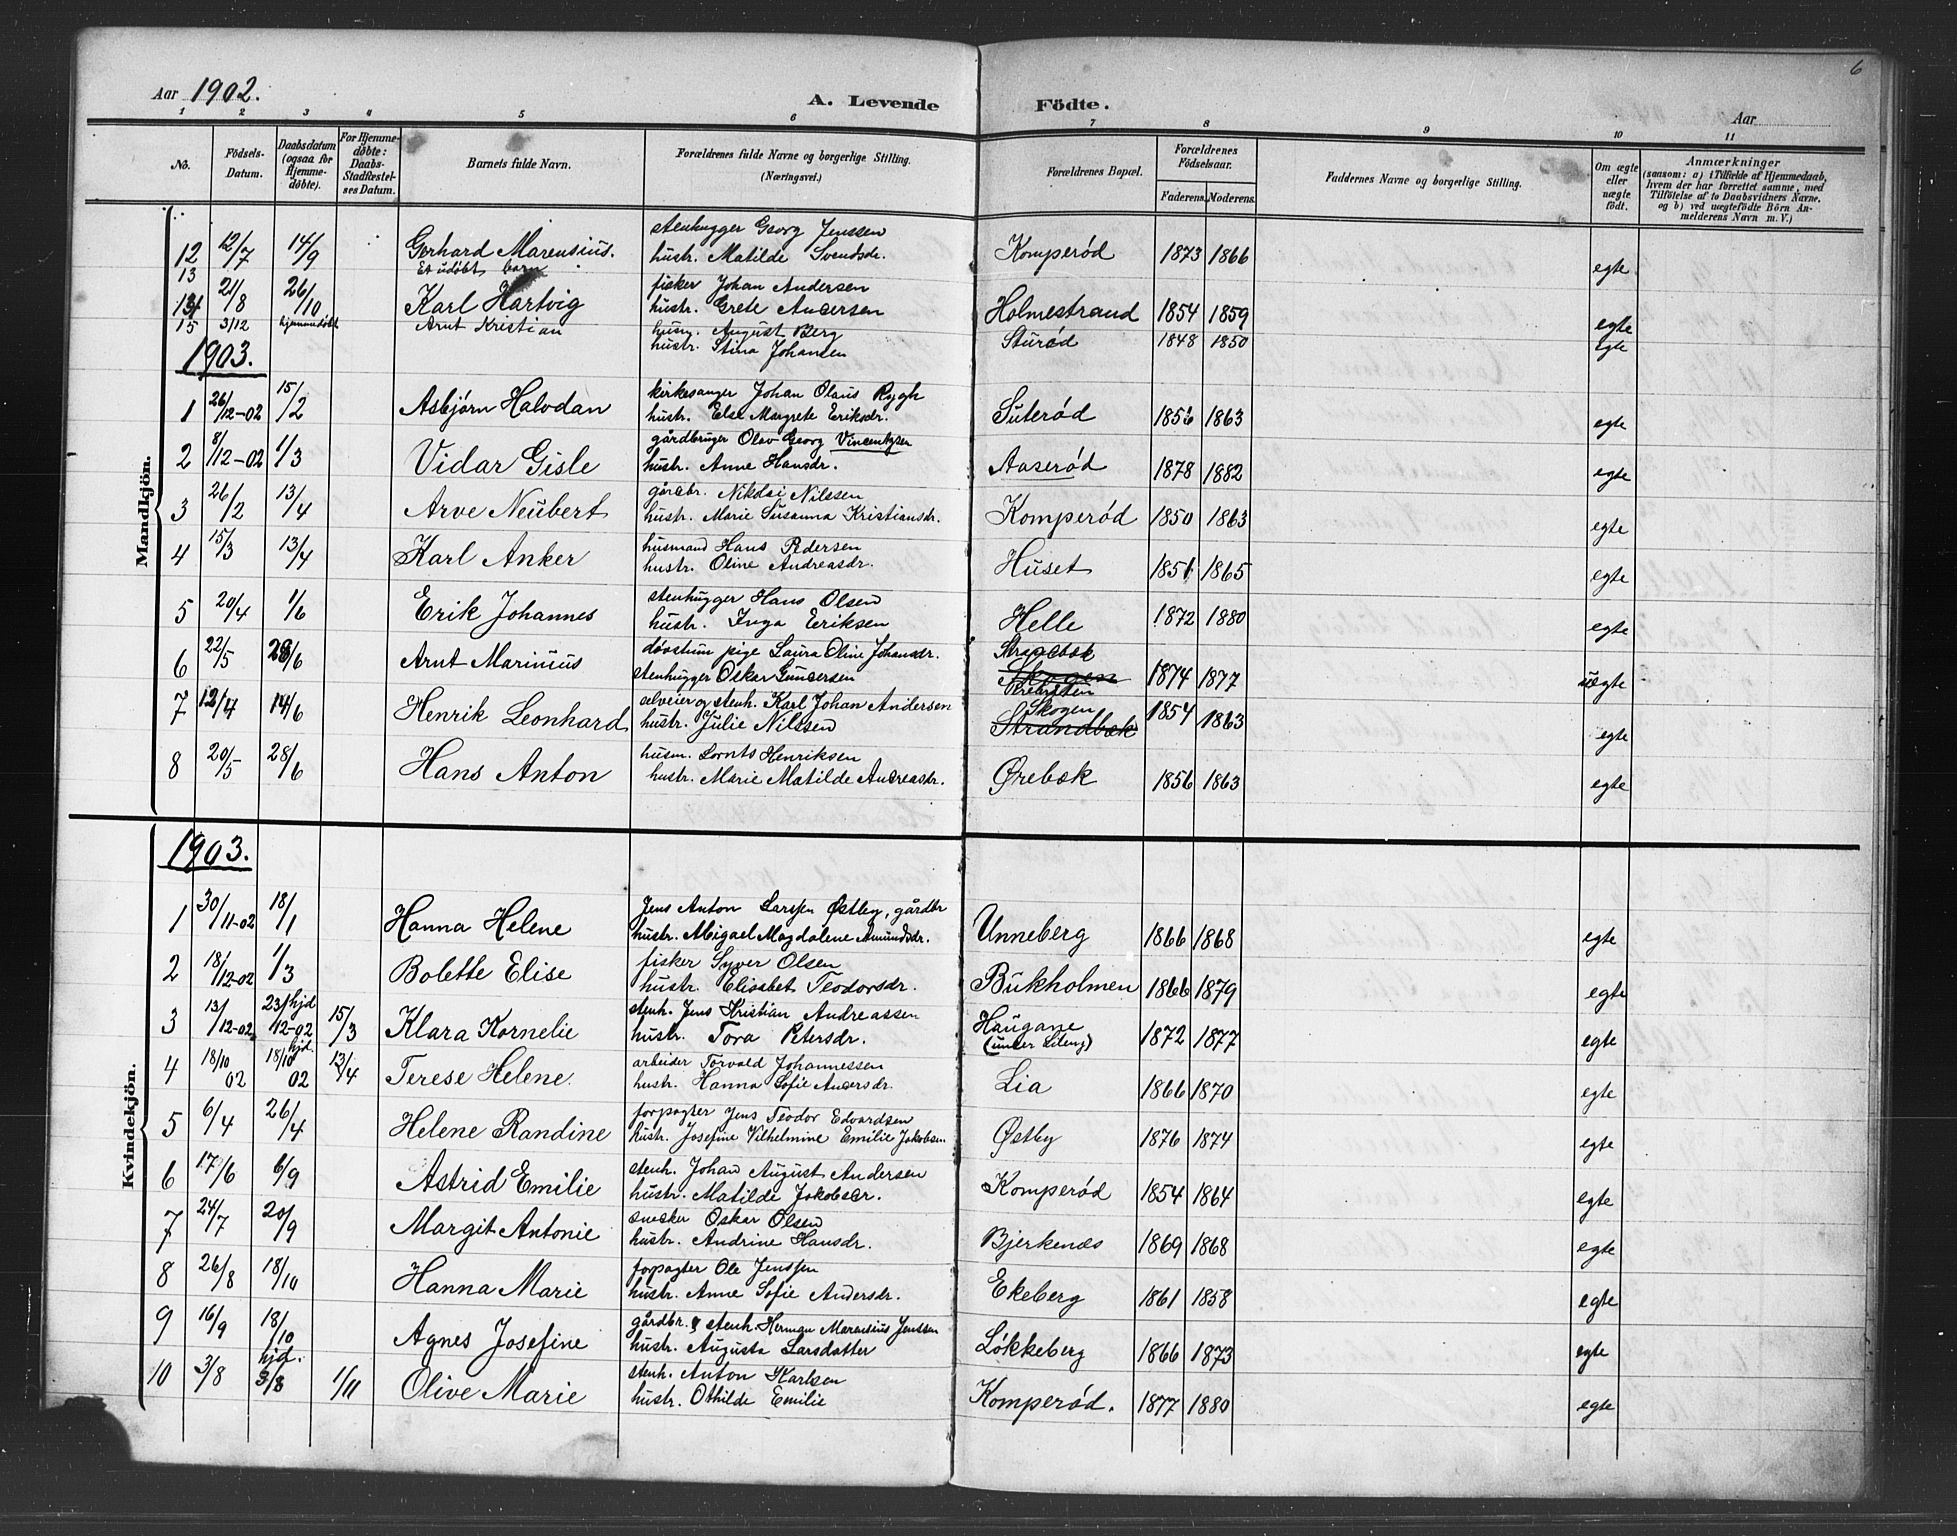 6
Aar 1902. A. Levende Födte. Aar
1 2 3 4 5 6 7 8 9 10 11
No. Födsels-Datum. Daabsdatum (ogsaa for Hjemmedöbte). For Hjemmedöbte: Daabs-Stadfæstelses Datum. Barnets fulde Navn. Forældrenes fulde Navne og borgerlige Stilling. (Næringsvei.) Forældrenes Bopæl. Forældrenes Födselsaar. Faderens. Moderens. Faddernes Navne og borgerlige Stilling. Om ægte eller uægte födt. Anmærkninger (saasom: a) i Tilfælde af Hjemmedaab, hvem der har forrettet samme, med Tilföielse af to Daabsvidners Navne, og b) ved uægtefödte Börn Anmelderens Navn m. V.)
Mandkjön.
stenhugger Georg Jenssen
12 12/7 14/9 Gerhard Marensius. hustr. Matilde Svendsdr. Komperød 1873 1866 egte
13 Et udøbt barn
fisker Johan Andersen
14 21/8 26/10 Karl Hartvig hustr. Grete Andersen Holmestrand 1854 1859 egte
15 3/12 hjemmedøbt Arnt Kristian husm. August Berg
hustr. Stina Johansen Sturød 1848 1850 egte
1903.
kirkesanger Johan Olaus Rygh
1 26/12-02 15/2 Asbjørn Halvdan hustr. Else Margrete Eriksdr. Suterød 1856 1863 egte
gårdbruger Olav Georg Vincentzsen
2 8/12-02 1/3 Vidar Gisle hustr. Anne Hansdr. Aaserød 1878 1882 egte
gårdbr. Nikolai Nilssen
3 26/2 13/4 Arve Neubert hustr. Marie Susanna Kristiansdr. Komperød 1850 1863 egte
husmand Hans Pedersen
4 15/3 13/4 Karl Anker hustr. Oline Andreasdr. Huset 1851 1865 egte
stenhugger Hans Olsen
5 20/4 1/6 Erik Johannes hustr. Inga Eriksen Helle 1872 1880 egte
døvstum pige Laura Oline Johansdr. Strandbæk
6 22/5 28/6 Arnt Marinius stenhugger Oskar Gundersen Skogen 1874 1877 uegte
selveier og stenh. Karl Johan Andersen Skogen
7 12/4 14/6 Henrik Leonhard hustr. Julie Nilssen Strandbæk 1854 1863 egte
husm. Lornts Henriksen
8 20/5 28/6 Hans Anton hustr. Marie Matilde Andreasdr. Ørebæk 1856 1863 egte
Kvindekjön.
1903.
Jens Anton Larssen Østby, gårdbr
1 30/11-02 18/1 Hanna Helene hustr. Abigael Magdalene Amundsdr. Unneberg 1866 1868 egte
fisker Syver Olsen
2 18/12-02 1/3 Bolette Elise hustr. Elisabet Teodorsdr. Bukholmen 1866 1879 egte
stenh. Jens Kristian Andreassen
3 13/12-02 23/12-02 hjd 15/3 Klara Kornelie hustr. Tora Petersdr. Haugane 1872 1877 egte
arbeider Torvald Johannessen
4 18/10 02 18/10 02 hjd. 13/4 Terese Helene. hustr. Hanna Sofie Andersdr. Lia 1866 1870 egte
forpagter Jens Teodor Edvardsen
5 6/4 26/4 Helene Randine hustr. Josefine Vilhelmine Emilie Jakobsen Østby 1876 1874 egte
stenh. Johan August Andersen
6 17/6 6/9 Astrid Emilie hustr. Matilde Jakobsdr. Komperød 1854 1864 egte
snedker Oskar Olsen
7 24/7 20/9 Margit Antonie hustr. Andrine Hansdr. Bjerkenæs 1869 1868 egte
forpagter Ole Jenssen
8 26/8 18/10 Hanna Marie hustr. Anne Sofie Andersdr. Ekeberg 1861 1858 egte
gårdbr. & stenh. Herman Marensius Jenssen
9 16/9 18/10 Agnes Josefine hustr. Augusta Larsdatter Løkkeberg 1866 1873 egte
stenh. Anton Karlsen
10 3/8 hjd. 3/8 1/11 Olive Marie hustr. Othilde Emilie Komperød. 1877 1880 egte